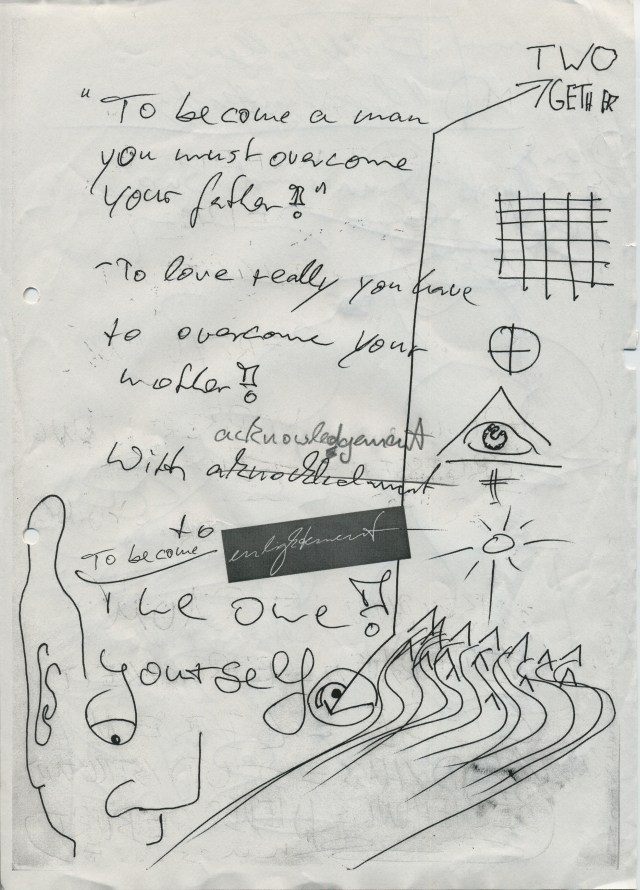 TWO
GETHER
"To become a man
you must overcome
your father!"
"To love really you have
to overcome your
mother!
acknowledgement
With
to
To become enlightement
The one!
yourself